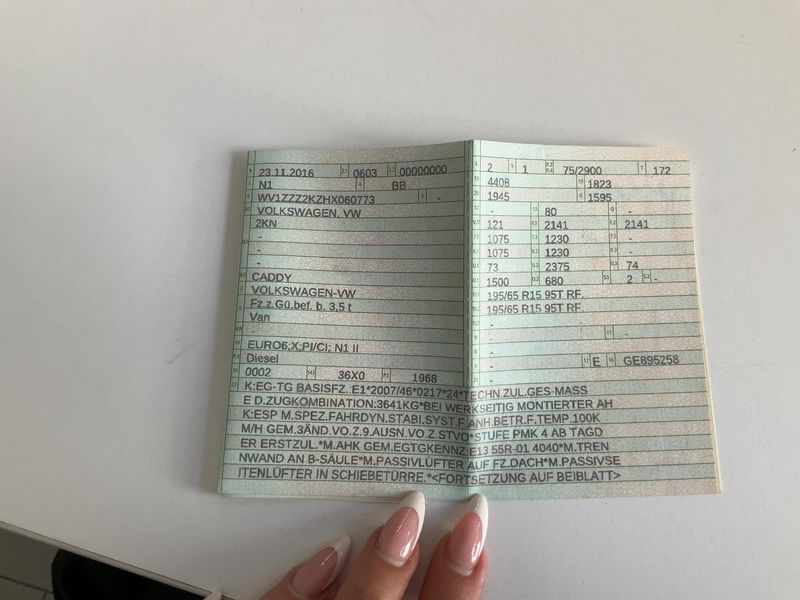 23.11.2016 0603 00000000
N1 BB
WV1ZZZ2KZHX060773 -
VOLKSWAGEN, VW
2KN
-
-
-
CADDY
VOLKSWAGEN-VW
Fz.z.Gü.bef. b. 3,5 t
Van
-
EURO6;X;PI/CI; N1 II
Diesel
0002 36X0 1968
2 1 75/2900 172
4408 1823
1945 1595
- 80 -
121 2141 2141
1075 1230 -
1075 1230 -
73 2375 74
1500 680 2 -
195/65 R15 95T RF
195/65 R15 95T RF
-
- -
-
- E GE895258
-
K:EG-TG BASISFZ.:E1*2007/46*0217*24*TECHN.ZUL.GES-MASS
E D.ZUGKOMBINATION:3641KG*BEI WERKSEITIG MONTIERTER AH
K:ESP M.SPEZ.FAHRDYN.STABI.SYST.F.ANH.BETR.F.TEMP.100K
M/H GEM.3ÄND.VO.Z.9.AUSN.VO.Z.STVO*STUFE PMK 4 AB TAGD
ER ERSTZUL.*M.AHK GEM.EGTGKENNZ:E13 55R-01 4040*M.TREN
NWAND AN B-SÄULE*M.PASSIVLÜFTER AUF FZ.DACH*M.PASSIVSE
ITENLÜFTER IN SCHIEBETÜRRE.*<FORTSETZUNG AUF BEIBLATT>